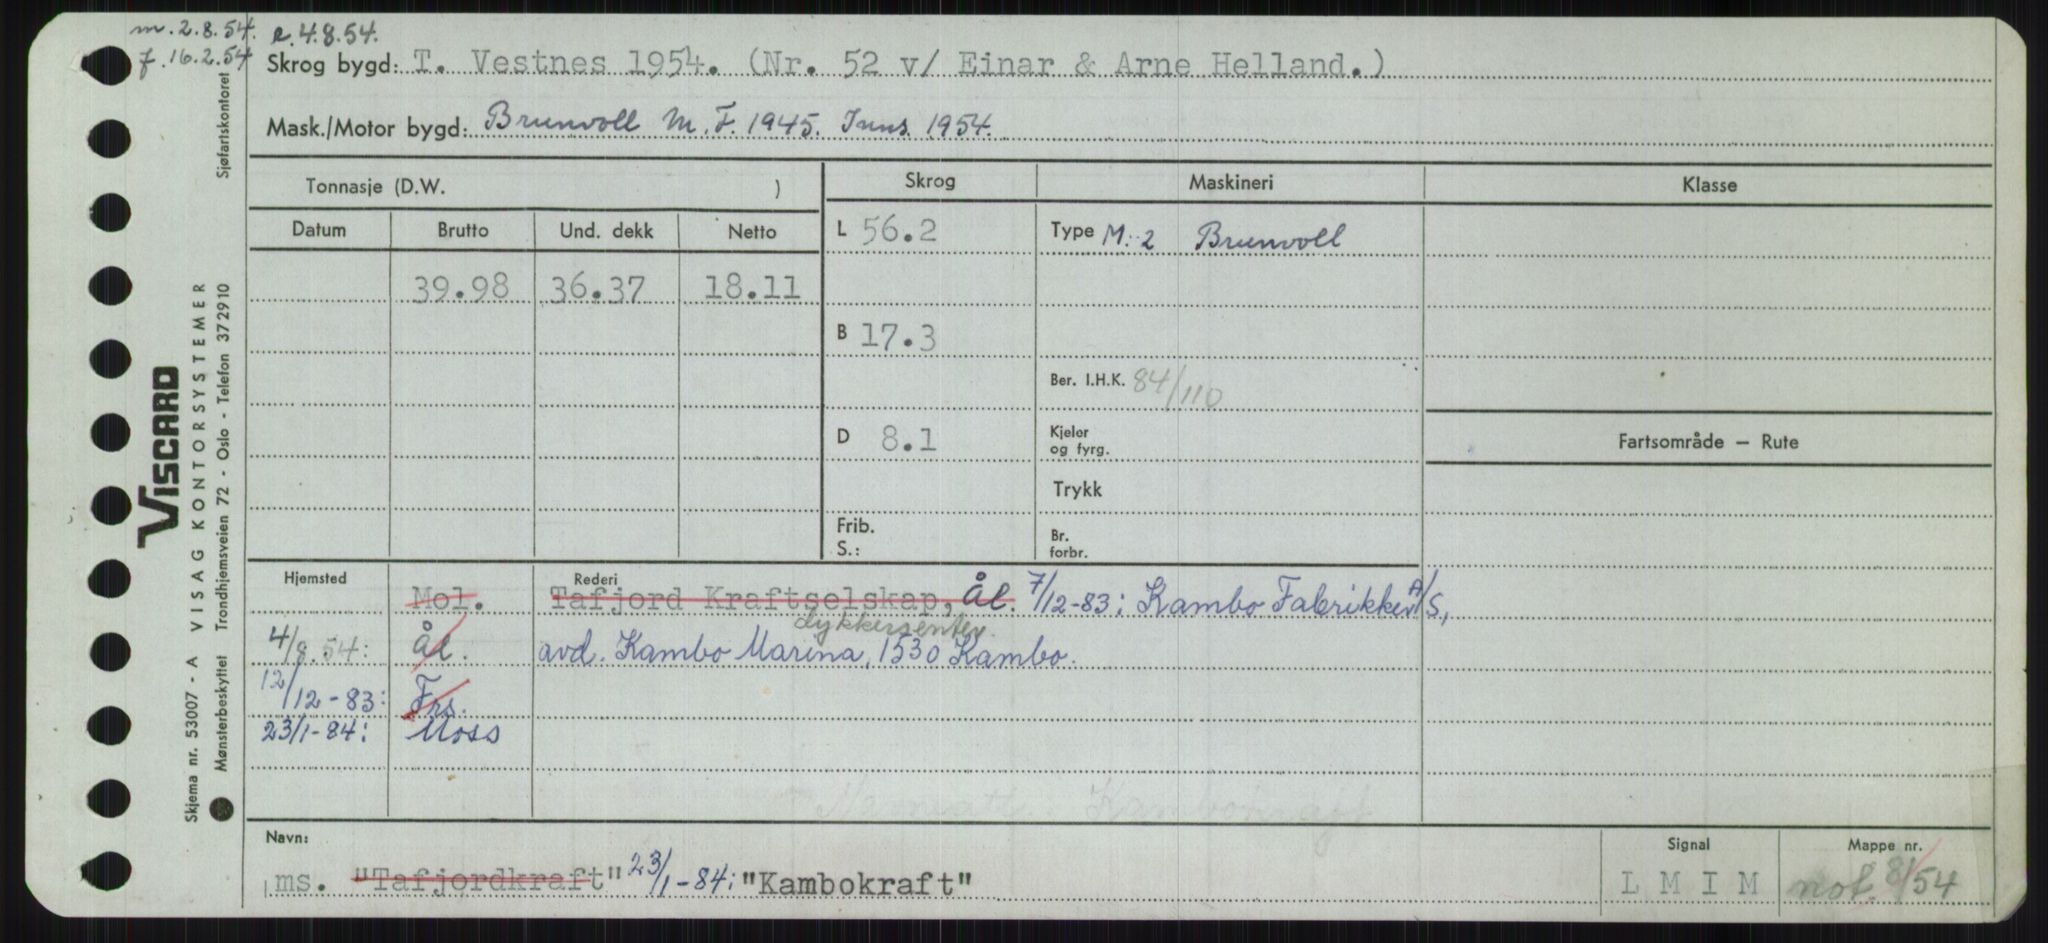 m. 2.8.54. e. 4.8.54.
f. 16.2.54
Skrog bygd: T. Vestnes 1954. (Nr. 52 v/ Einar & Arne Helland.)
Mask./Motor bygd: Brunvoll M.F. 1945. Inns. 1954.
Tonnasje (D.W. )
Skrog Maskineri Klasse
Datum Brutto Und. dekk Netto
L 56.2 Type M: 2 Brunvoll
39.98 36.37 18.11
B 17.3
Ber. I.H.K. 84/110
D 8.1 Kjeler og fyrg.
Fartsområde — Rute
Trykk
Frib. S.: Br. forbr.
Hjemsted Rederi
Mol. Tafjord Kraftselskap, Ål. 7/12-83: Kambo Fabrikker A/S,
dykkersenter
4/8.54: Ål. avd. Kambo Marina, 1530 Kambo.
12/12-83: Frs.
23/1-84: Moss
Kambokraft
Navn: Signal Mappe nr.
ms. "Tafjordkraft" 23/1-84: "Kambokraft" L M I M not. 81/54
Sjøfartskontoret
VISCARD
VISAG KONTORSYSTEMER
Trondhjemsveien 72 - Oslo - Telefon 372910
Skjema nr. 53007 - A
Mønsterbeskyttet